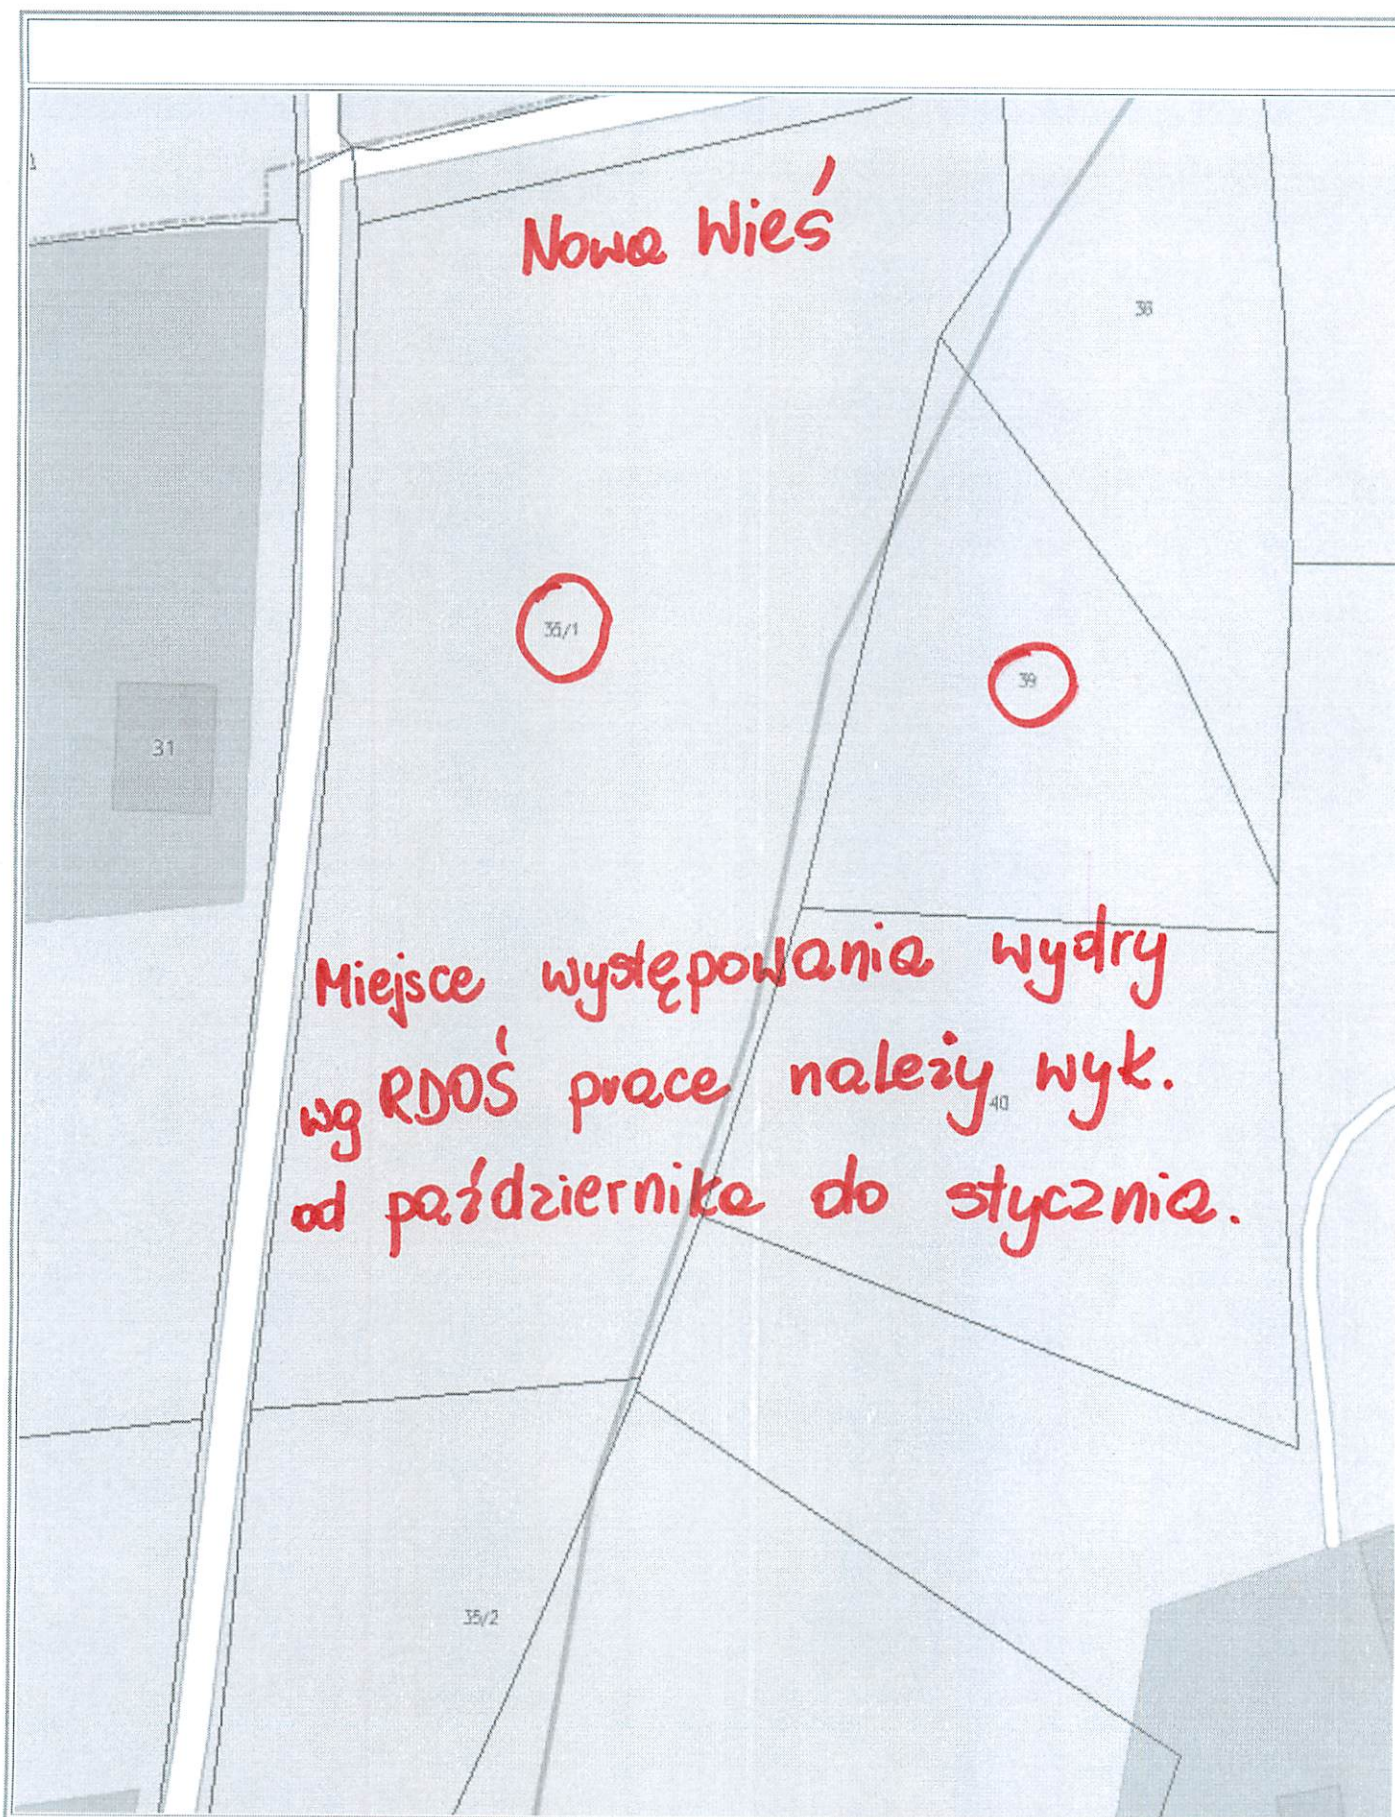 Nowa Wieś
38
35/1
39
31
Miejsce występowania wydry
wg RDOŚ prace należy wyk.
40
od października do stycznia.
35/2